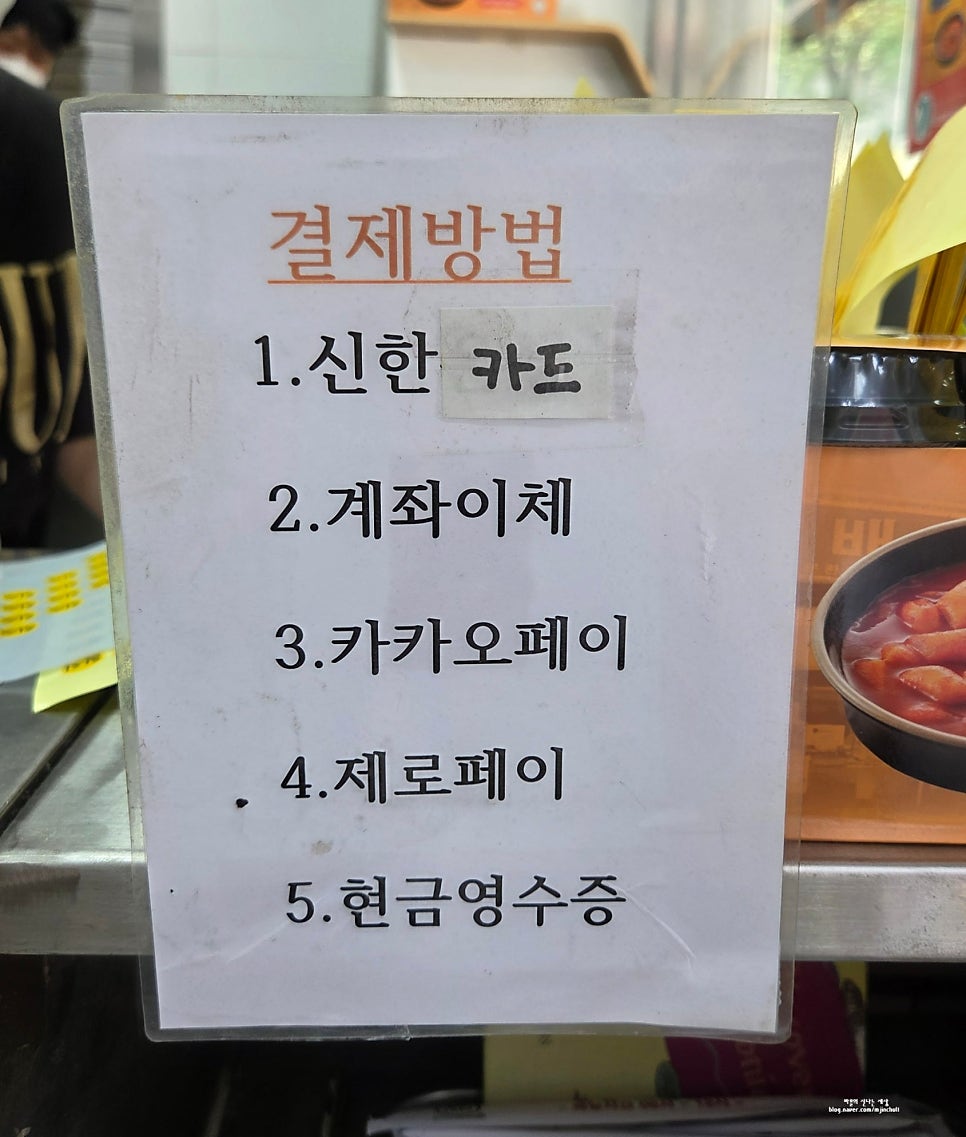 결제방법
1.신한 카드
2.계좌이체
3.카카오페이
4.제로페이
5.현금영수증
blog.naver.com/mjinchull